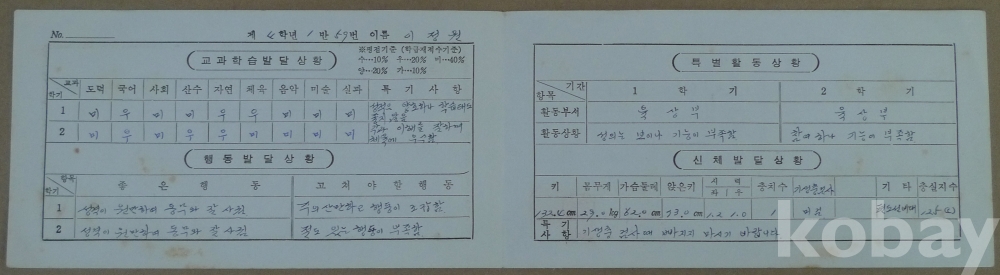 No.
제 4 학년 1 반 69번 이름 이 정 원
교과학습발달상황
※평점기준 (학급재적수기준)
수…10% 우…20% 미…40%
양…20% 가…10%
교과 도덕 국어 사회 산수 자연 체육 음악 미술 실과 특 기 사 항
학기
1 미 우 미 미 우 우 미 미 미
2 미 우 미 우 우 우 미 미 미
행동발달상황
항목 좋 은 행 동 고 쳐 야 할 행 동
학기
1 성격이 원만하며 동무와 잘 사귐 주의 산만하고 행동이 조잡함
2 성격이 원만하며 동무와 잘 사귐 행동이 부족함
특별활동상황
기간 1 학 기 2 학 기
항목
활동부서 육 상 부 육 상 부
활동상황 성의는 보이나 기능이 부족함 참여하나 기능이 부족함
신체발달상황
키 몸무게 가슴둘레 앉은키 시 력 충치수 기생충검사 기 타 충실지수
좌 우
132.4cm 29.0kg 62.0cm 73.0cm 1.2 1.0 1
특기사항 기생충 검사에 빠지지 마시기 바랍니다
kobay